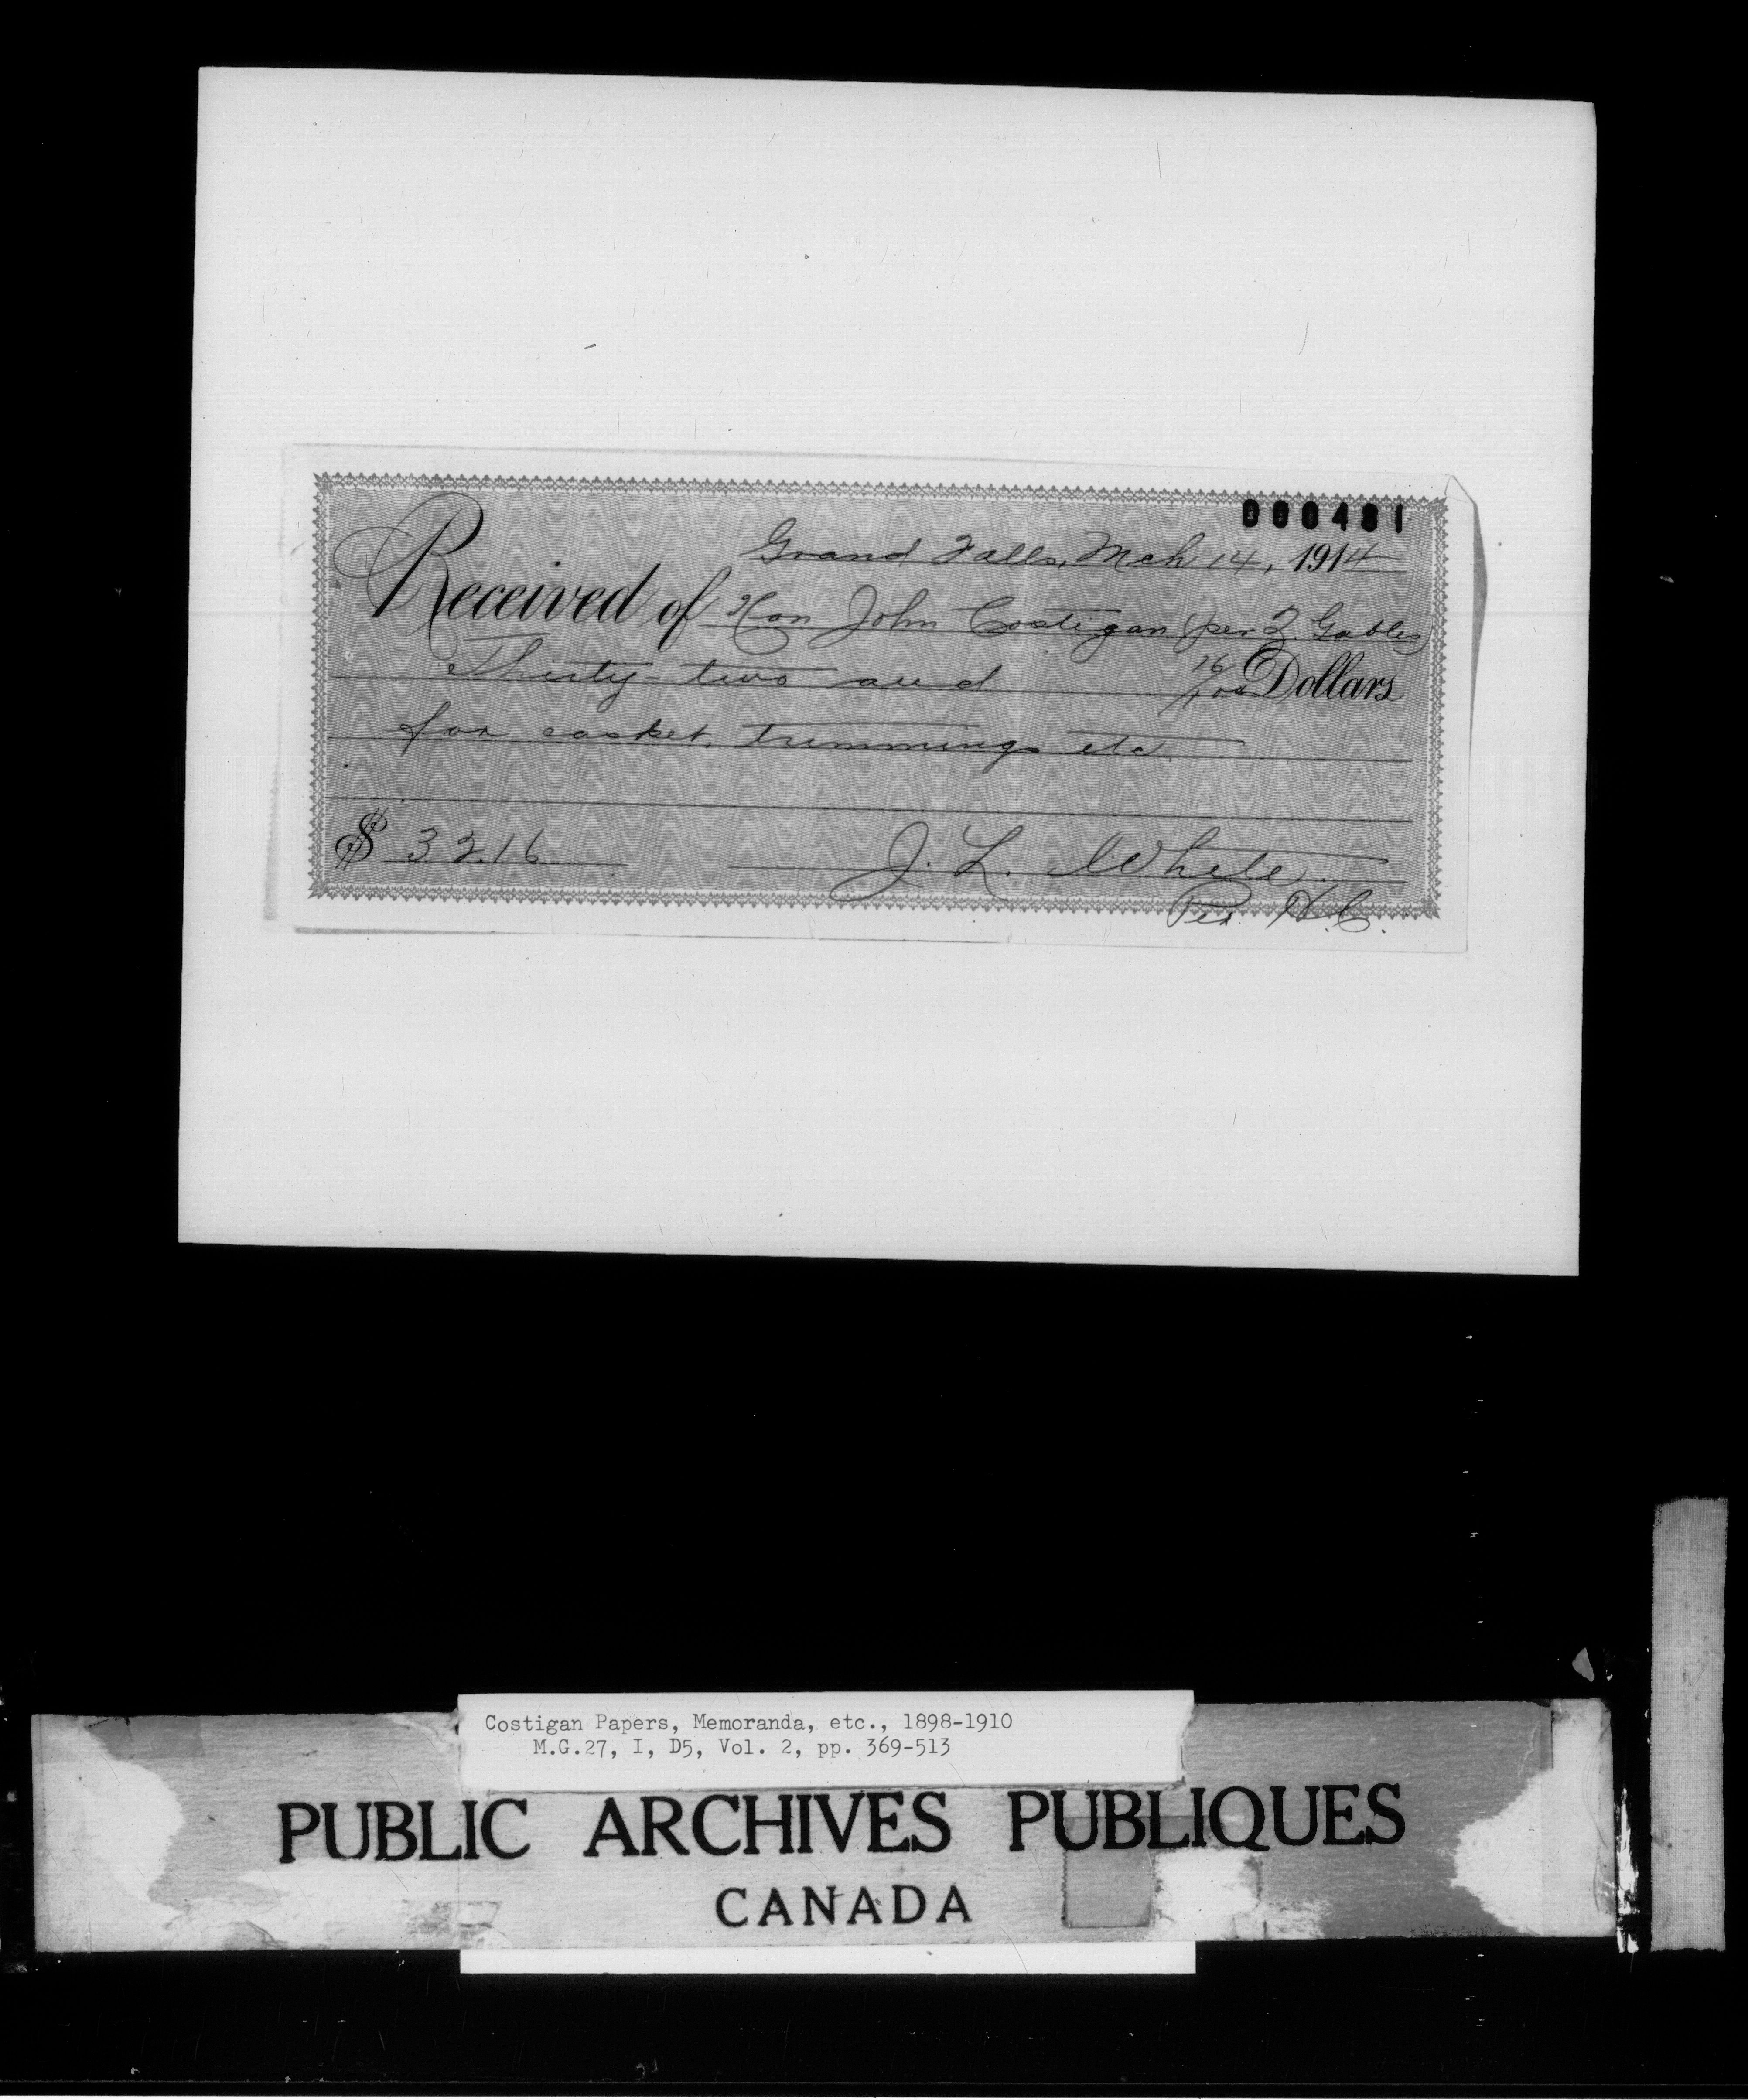 000481
Grand Falls, Mch 14, 1914
Received of Hon John Costigan (per Z. Gables)
Thirty-two and 16/100 Dollars
for casket, trimmings etc.
$ 32.16 J. L. White
Per H.C.
Costigan Papers, Memoranda, etc., 1898-1910
M.G.27, I, D5, Vol. 2, pp. 369-513
PUBLIC ARCHIVES PUBLIQUES
CANADA